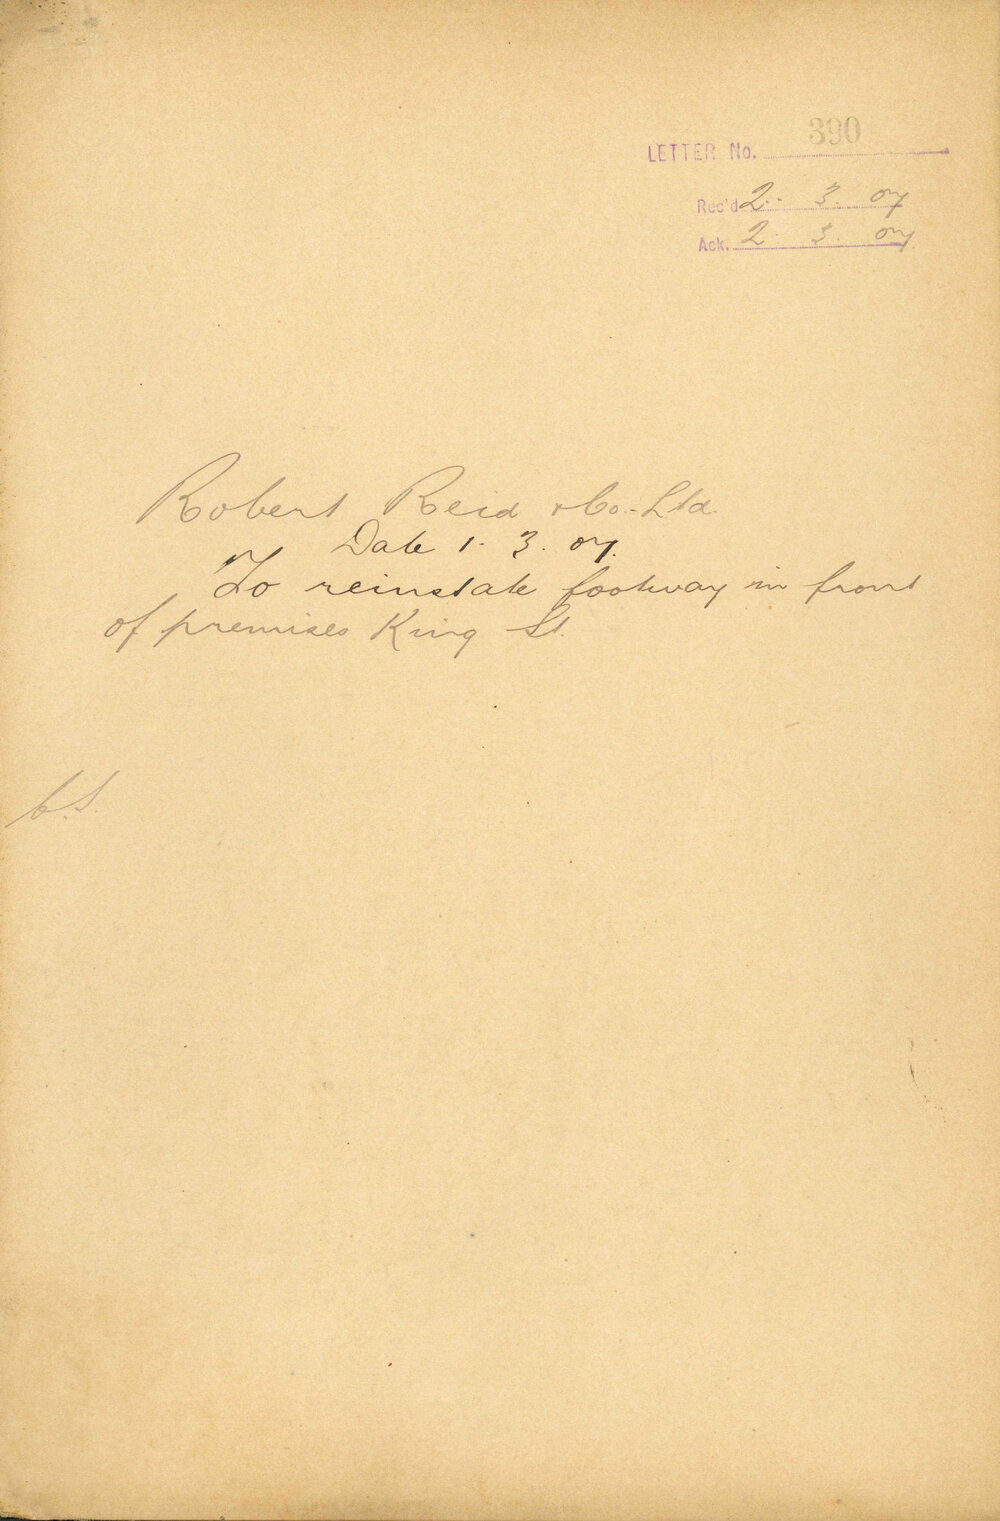 LETTER No. 390
Rec'd 2. 3. 07
Ack. 2. 3. 07
Robert Reid & Co. Ltd.
Date 1. 3. 07.
To reinstate footway in front
of premises King St.
C.S.